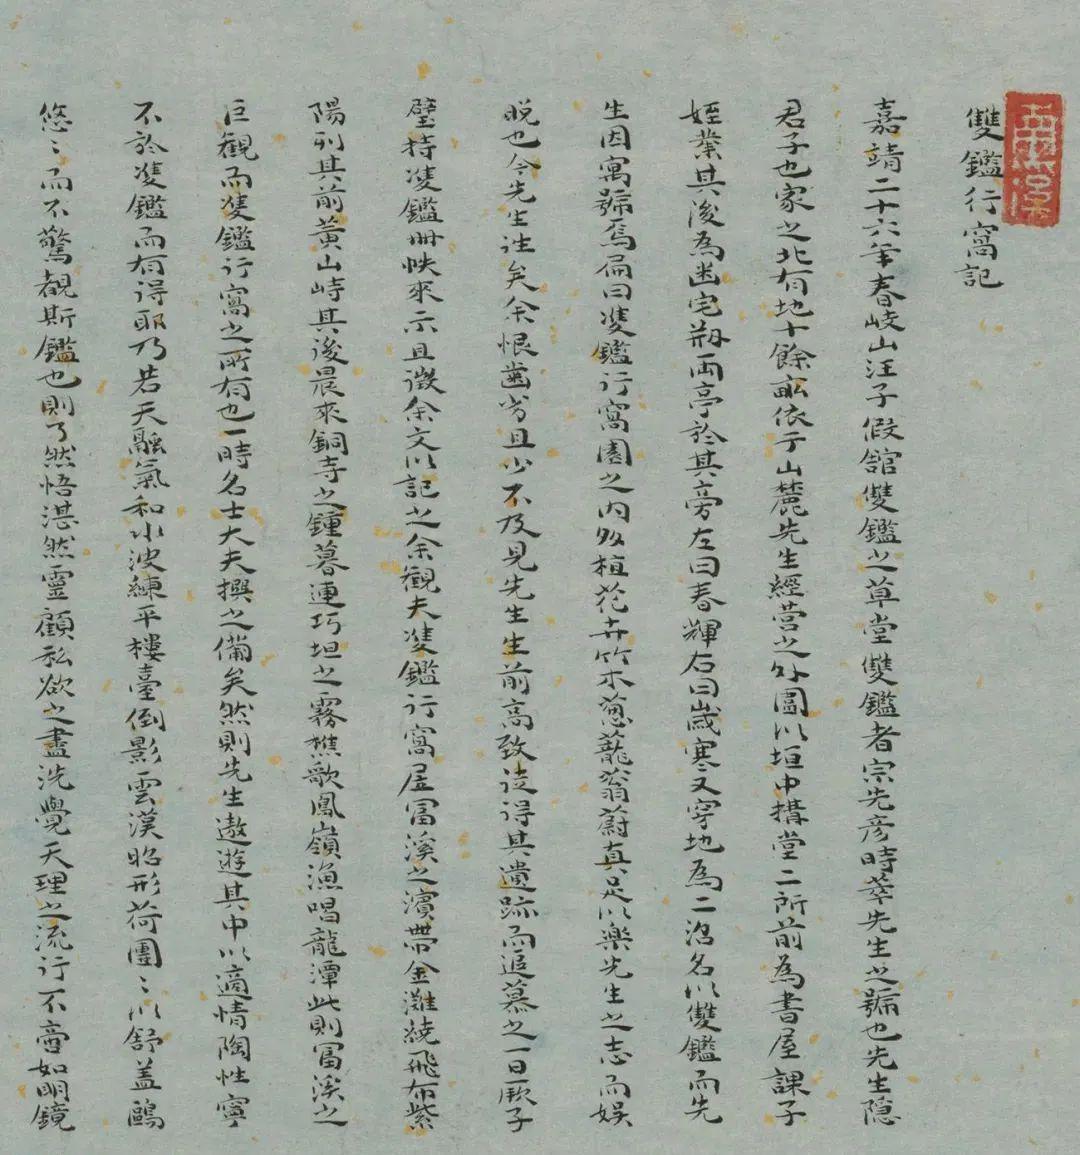 雙鑑行窩記
嘉靖二十六年春岐山汪子假館雙鑑之草堂雙鑑者宗先彥時萃先生之號也先生隱
君子也家之北有地十餘畝依于山麓先生經營之外圍以垣中搆堂二所前為書屋課子
姪業其後為幽宅剏兩亭於其旁左曰春輝右曰歲寒又穿地為二沼名以雙鑑而先
生因寓號焉扁曰雙鑑行窩園之內多植花卉竹木蔥蘢蓊蔚真足以樂先生之志而娛
晚也今先生往矣余恨齒劣且少不及見先生生前高致徒得其遺跡而追慕之一日厥子
璧持雙鑑冊帙來示且徵余文以記之余觀夫雙鑑行窩居富溪之濱帶金灘繞飛布紫
陽列其前黃山峙其後晨來銅寺之鍾暮連巧坦之霧樵歌鳳嶺漁唱龍潭此則富溪之
巨觀而雙鑑行窩之所有也一時名士大夫撰之備矣然則先生遨遊其中以適情陶性寧
不於雙鑑而有得耶乃若天融氣和水波練平樓臺倒影雲漢昭形荷團〻以舒蓋鷗
悠〻而不驚覩斯鑑也則了然悟湛然靈顧私欲之盡洗覺天理之流行不啻如明鏡